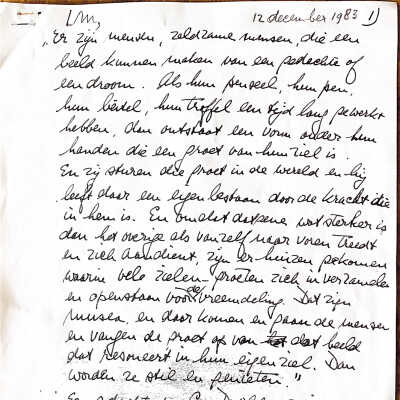 LM, 12 december 1983 1)
"Er zijn mensen, zeldzame mensen, die een
beeld kunnen maken van een gedachte of
een droom. Als hun penseel, hun pen,
hun beitel, hun troffel een tijd lang gewerkt
hebben, dan ontstaat een vorm onder hun
handen die een groet van hun ziel is.
En zij sturen die groet in de wereld en hij
leeft daar een eigen bestaan door de kracht die
in hem is. En omdat datgene wat sterker is
dan het overige als vanzelf naar voren treedt
en zich aandient, zijn er huizen gekomen
waarin vele zielen-groeten zich in verzamelen
en openstaan voor de vreemdeling. Dat zijn
musea. en daar komen en gaan de mensen
en vangen de groet op van dat beeld
dat resoneert in hun eigen ziel. Dan
worden ze stil en genieten."